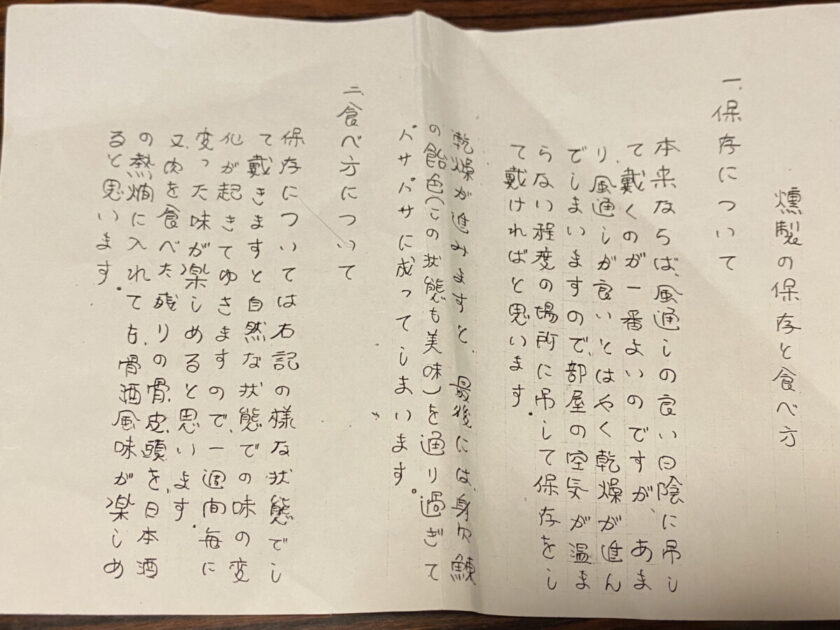 燻製の保存と食べ方
一、保存について
本来ならば、風通しの良い日陰に吊し
て戴くのが一番よいのですが、あま
り風通しが良いとはやく乾燥が進ん
でしまいますので、部屋の空気が温ま
らない程度の場所に吊して保存をし
て戴ければと思います。
乾燥が進みますと、最後には、身欠鰊
の飴色(この状態も美味)を通り過ぎて
パサパサに成ってしまいます。
二、食べ方について
保存については右記の様な状態でし
て戴きますと自然な状態での味の変
化が起きてゆきますので、一週間毎に
変った味が楽しめると思います。
又、肉を食べた残りの骨、皮、頭を、日本酒
の熱燗に入れても、骨酒風味が楽しめ
ると思います。